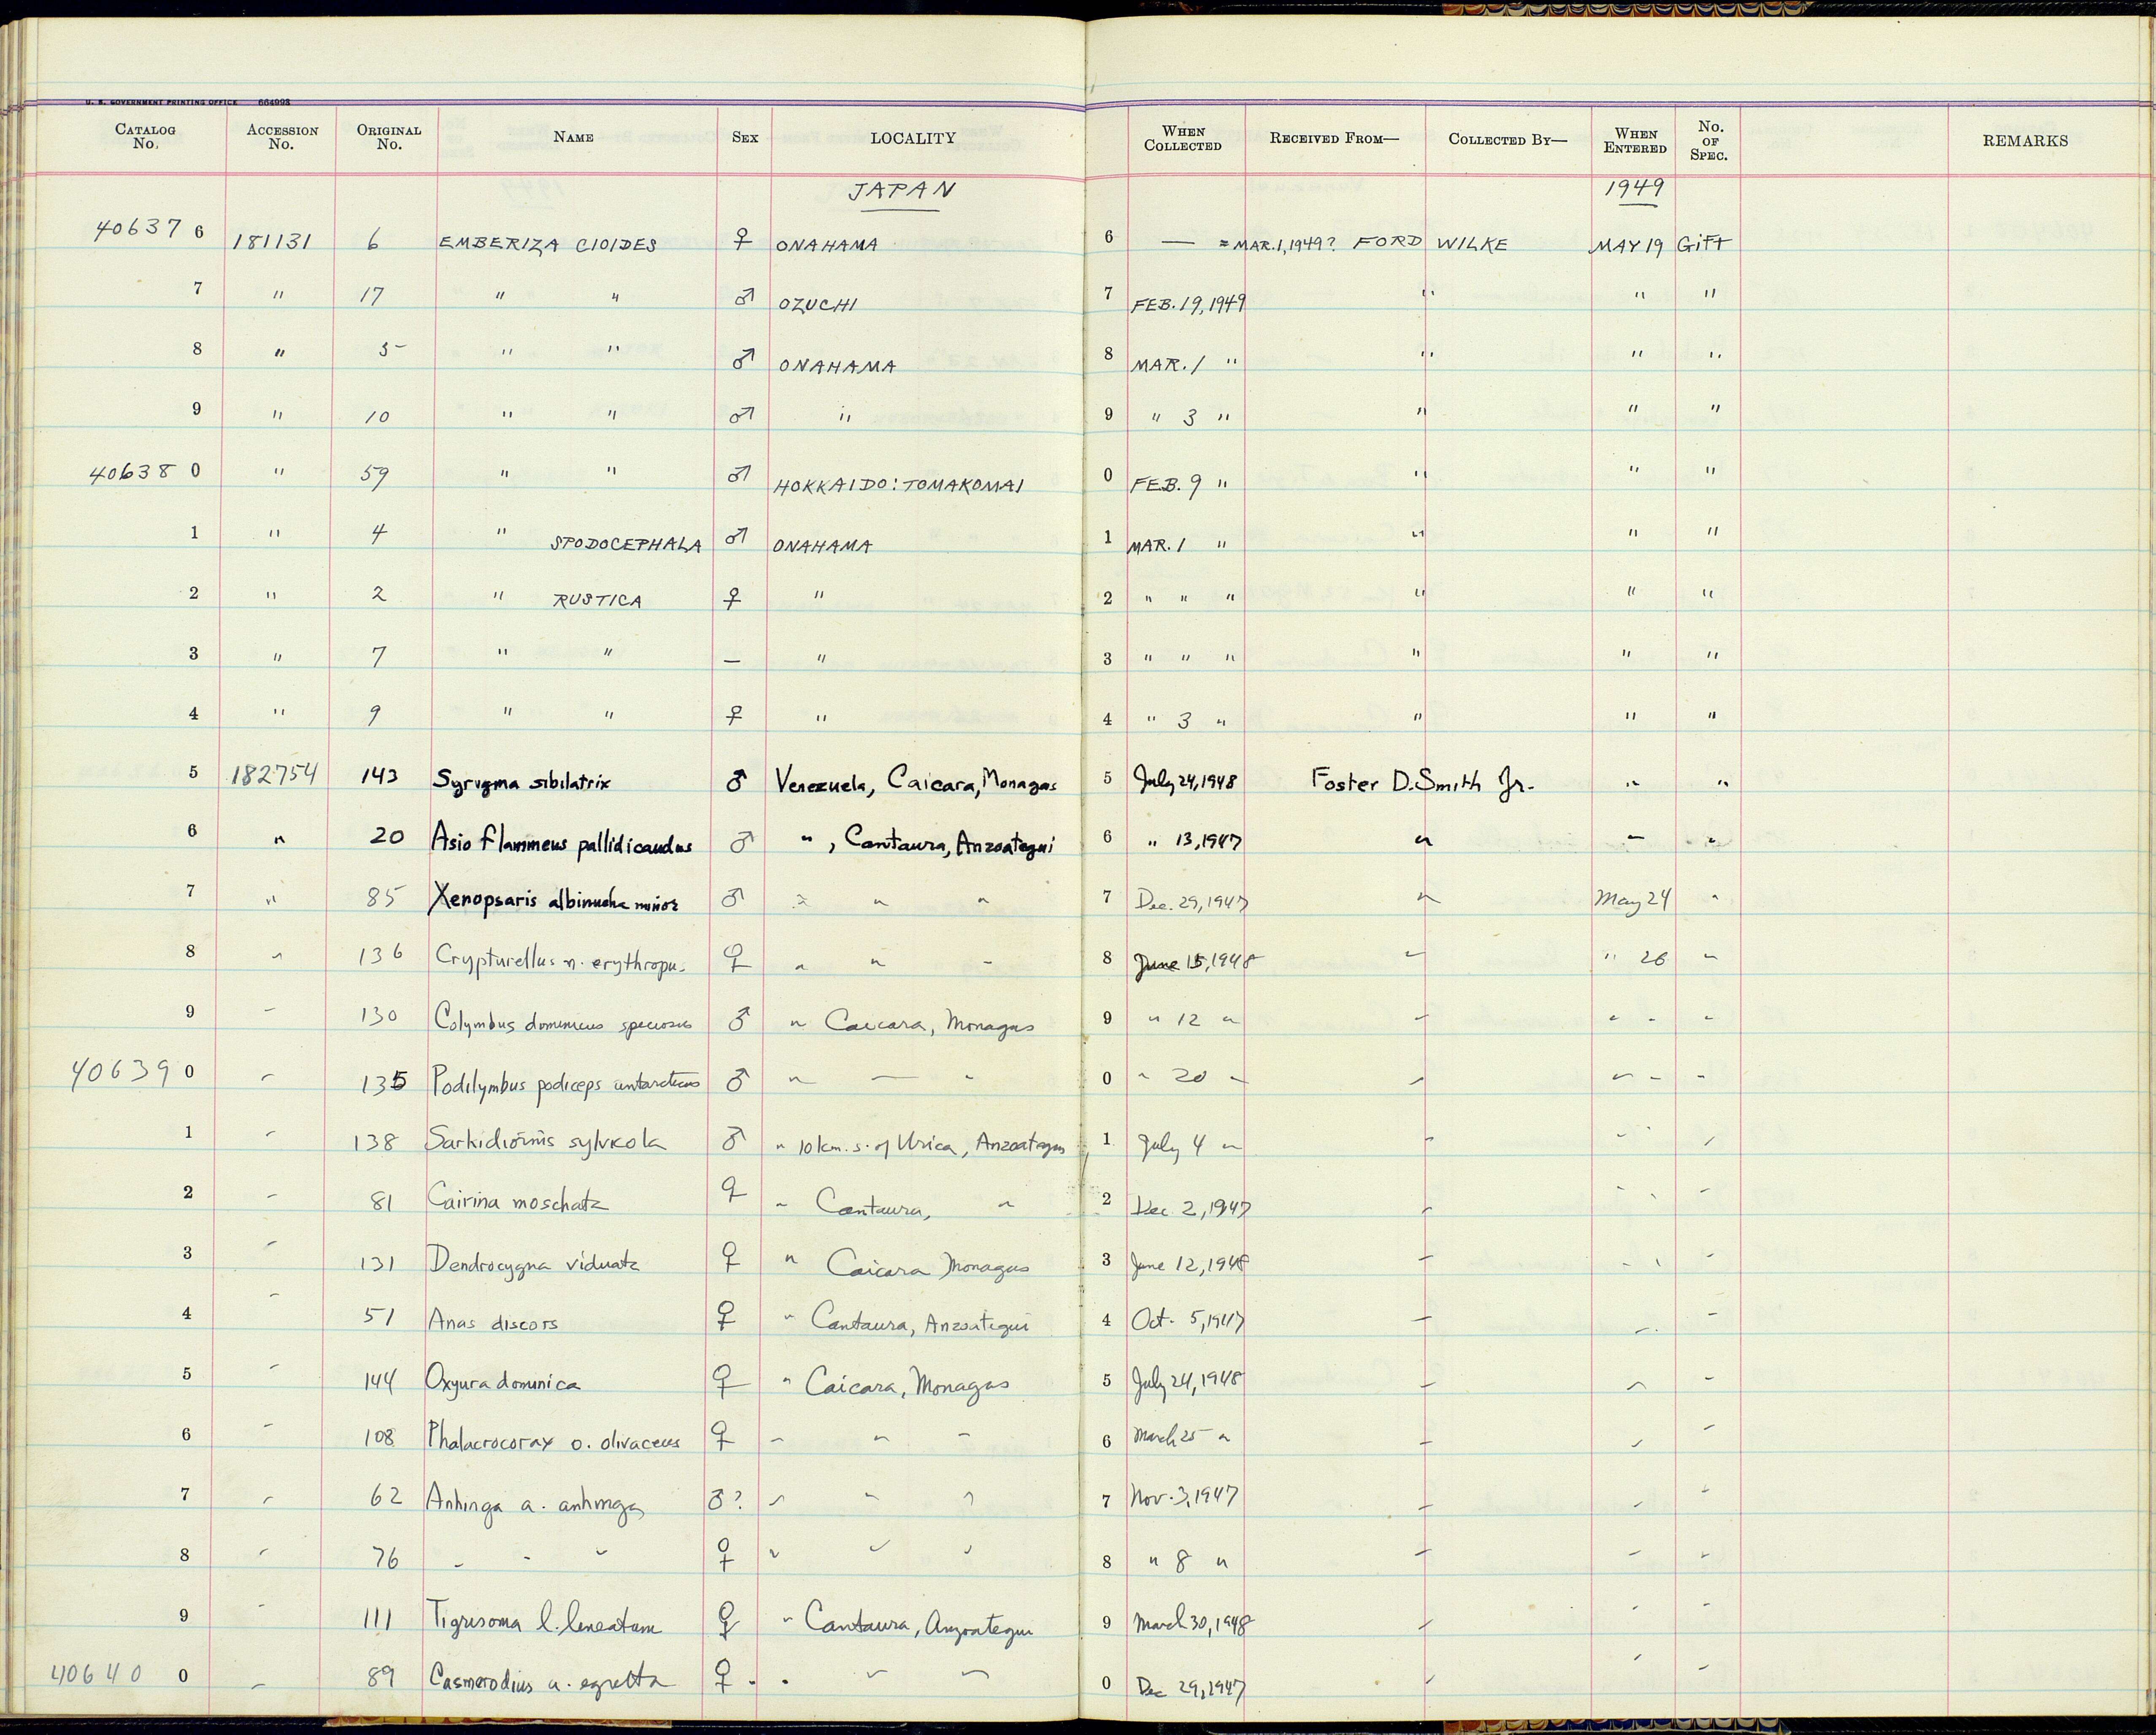 U. S. GOVERNMENT PRINTING OFFICE 664998
CATALOG No. ACCESSION No. ORIGINAL No. NAME SEX LOCALITY WHEN COLLECTED RECEIVED FROM— COLLECTED BY— WHEN ENTERED No. OF SPEC. REMARKS
JAPAN 1949
40637 6 181131 6 EMBERIZA CIOIDES ♀ ONAHAMA 6 — = MAR. 1, 1949? FORD WILKE MAY 19 GIFT
7 " 17 " " ♂ OZUCHI 7 FEB. 19, 1949 " " "
8 " 5 " " ♂ ONAHAMA 8 MAR. 1 " " " "
9 " 10 " " ♂ " 9 " 3 " " " "
40638 0 " 59 " " ♂ HOKKAIDO: TOMAKOMAI 0 FEB. 9 " " " "
1 " 4 " SPODOCEPHALA ♂ ONAHAMA 1 MAR. 1 " " " "
2 " 2 " RUSTICA ♀ " 2 " " " " " "
3 " 7 " " — " 3 " " " " " "
4 " 9 " " ♀ " 4 " 3 " " " "
5 182754 143 Syrigma sibilatrix ♂ Venezuela, Caicara, Monagas 5 July 24, 1948 Foster D. Smith Jr. " "
6 " 20 Asio flammeus pallidicaudus ♂ " , Cantaura, Anzoategui 6 " 13, 1947 " " "
7 " 85 Xenopsaris albinucha minor ♂ " " " 7 Dec. 29, 1947 " May 24 "
8 " 136 Crypturellus n. erythropus ♀ " " " 8 June 15, 1948 " " 26 "
9 " 130 Colymbus dominicus speciosus ♂ " Caicara, Monagas 9 " 12 " " " " "
40639 0 " 135 Podilymbus podiceps antarcticus ♂ " " " 0 " 20 " " " " "
1 " 138 Sarkidiornis sylvicola ♂ " 10 km. s. of Urica, Anzoategui 1 July 4 " " " "
2 " 81 Cairina moschata ♀ " Cantaura, " 2 Dec 2, 1947 " " " "
3 " 131 Dendrocygna viduata ♀ " Caicara Monagas 3 June 12, 1948 " " " "
4 " 51 Anas discors ♀ " Cantaura, Anzoategui 4 Oct. 5, 1947 " " "
5 " 144 Oxyura dominica ♀ " Caicara, Monagas 5 July 24, 1948 " " "
6 " 108 Phalacrocorax o. olivaceus ♀ " " " 6 March 25 " " " "
7 " 62 Anhinga a. anhinga ♂? " " " 7 Nov. 3, 1947 " " "
8 " 76 " " " ♀ " " " 8 " 8 " " " "
9 " 111 Tigrisoma l. lineatum ♀ " Cantaura, Anzoategui 9 March 30, 1948 " " "
40640 0 " 89 Casmerodius a. egretta ♀ " " " 0 Dec 29, 1947 " " "